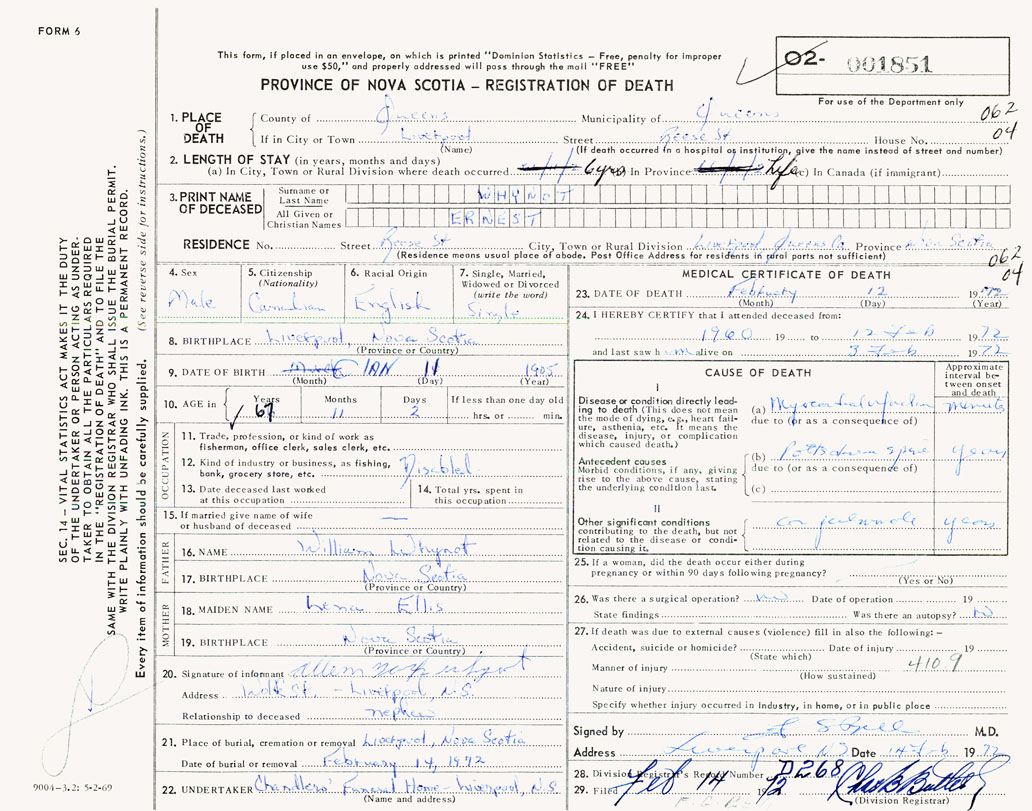 FORM 6
This form, if placed in an envelope, on which is printed "Dominion Statistics – Free, penalty for improper
use $50," and properly addressed will pass through the mail "FREE"
PROVINCE OF NOVA SCOTIA – REGISTRATION OF DEATH
02- 001851
For use of the Department only
062
04
1. PLACE OF DEATH
County of Queens Municipality of Queens
If in City or Town Liverpool Street Reese St House No.
(Name) (If death occurred in a hospital or institution, give the name instead of street and number)
2. LENGTH OF STAY (in years, months and days)
(a) In City, Town or Rural Division where death occurred 6 yrs In Province Life (c) In Canada (if immigrant)
3. PRINT NAME OF DECEASED
Surname or Last Name WHYNOT
All Given or Christian Names ERNEST
RESIDENCE No. Street Reese St City, Town or Rural Division Liverpool, Queens Co. Province Nova Scotia
(Residence means usual place of abode. Post Office Address for residents in rural parts not sufficient)
062
04
4. Sex Male
5. Citizenship (Nationality) Canadian
6. Racial Origin English
7. Single, Married, Widowed or Divorced (write the word) Single
8. BIRTHPLACE Liverpool, Nova Scotia
(Province or Country)
9. DATE OF BIRTH JAN 11 1905
(Month) (Day) (Year)
10. AGE in Years Months Days If less than one day old
67 11 2 hrs. or min.
OCCUPATION
11. Trade, profession, or kind of work as
fisherman, office clerk, sales clerk, etc.
12. Kind of industry or business, as fishing,
bank, grocery store, etc. Disabled
13. Date deceased last worked
at this occupation
14. Total yrs. spent in
this occupation
15. If married give name of wife
or husband of deceased —
FATHER
16. NAME William Whynot
17. BIRTHPLACE Nova Scotia
(Province or Country)
MOTHER
18. MAIDEN NAME Lena Ellis
19. BIRTHPLACE Nova Scotia
(Province or Country)
20. Signature of informant
Address St. – Liverpool, N.S.
Relationship to deceased nephew
21. Place of burial, cremation or removal Liverpool, Nova Scotia
Date of burial or removal February 14, 1972
22. UNDERTAKER Chandlers' Funeral Home – Liverpool, N.S.
(Name and address)
MEDICAL CERTIFICATE OF DEATH
23. DATE OF DEATH February 12 1972
(Month) (Day) (Year)
24. I HEREBY CERTIFY that I attended deceased from:
1960 19 to 12 Feb 1972
and last saw him alive on 3 Feb 1972
CAUSE OF DEATH
Approximate interval between onset and death
I
Disease or condition directly lead-
ing to death (This does not mean
the mode of dying, e.g., heart fail-
ure, asthenia, etc. It means the
disease, injury, or complication
which caused death.)
(a) Myocardial infarction minutes
due to (or as a consequence of)
Antecedent causes
Morbid conditions, if any, giving
rise to the above cause, stating
the underlying condition last.
(b) Potts' spine years
due to (or as a consequence of)
(c)
II
Other significant conditions
contributing to the death, but not
related to the disease or condi-
tion causing it.
cor pulmonale years
25. If a woman, did the death occur either during
pregnancy or within 90 days following pregnancy?
(Yes or No)
26. Was there a surgical operation? no Date of operation 19
State findings Was there an autopsy? No
27. If death was due to external causes (violence) fill in also the following: –
Accident, suicide or homicide? Date of injury 19
(State which)
Manner of injury 410 9
(How sustained)
Nature of injury
Specify whether injury occurred in industry, in home, or in public place
Signed by M.D.
Address Liverpool NS Date 14 Feb 1972
28. Division Registrar's Record Number D268
29. Filed Feb 14 1972
(Division Registrar)
SEC. 14 – VITAL STATISTICS ACT MAKES IT THE DUTY
OF THE UNDERTAKER OR PERSON ACTING AS UNDER-
TAKER TO OBTAIN ALL THE PARTICULARS REQUIRED
IN THE "REGISTRATION OF DEATH" AND TO FILE THE
SAME WITH THE DIVISION REGISTRAR WHO SHALL ISSUE THE BURIAL PERMIT.
WRITE PLAINLY WITH UNFADING INK. THIS IS A PERMANENT RECORD.
Every item of information should be carefully supplied. (See reverse side for instructions.)
9004-3.2: 5-2-69